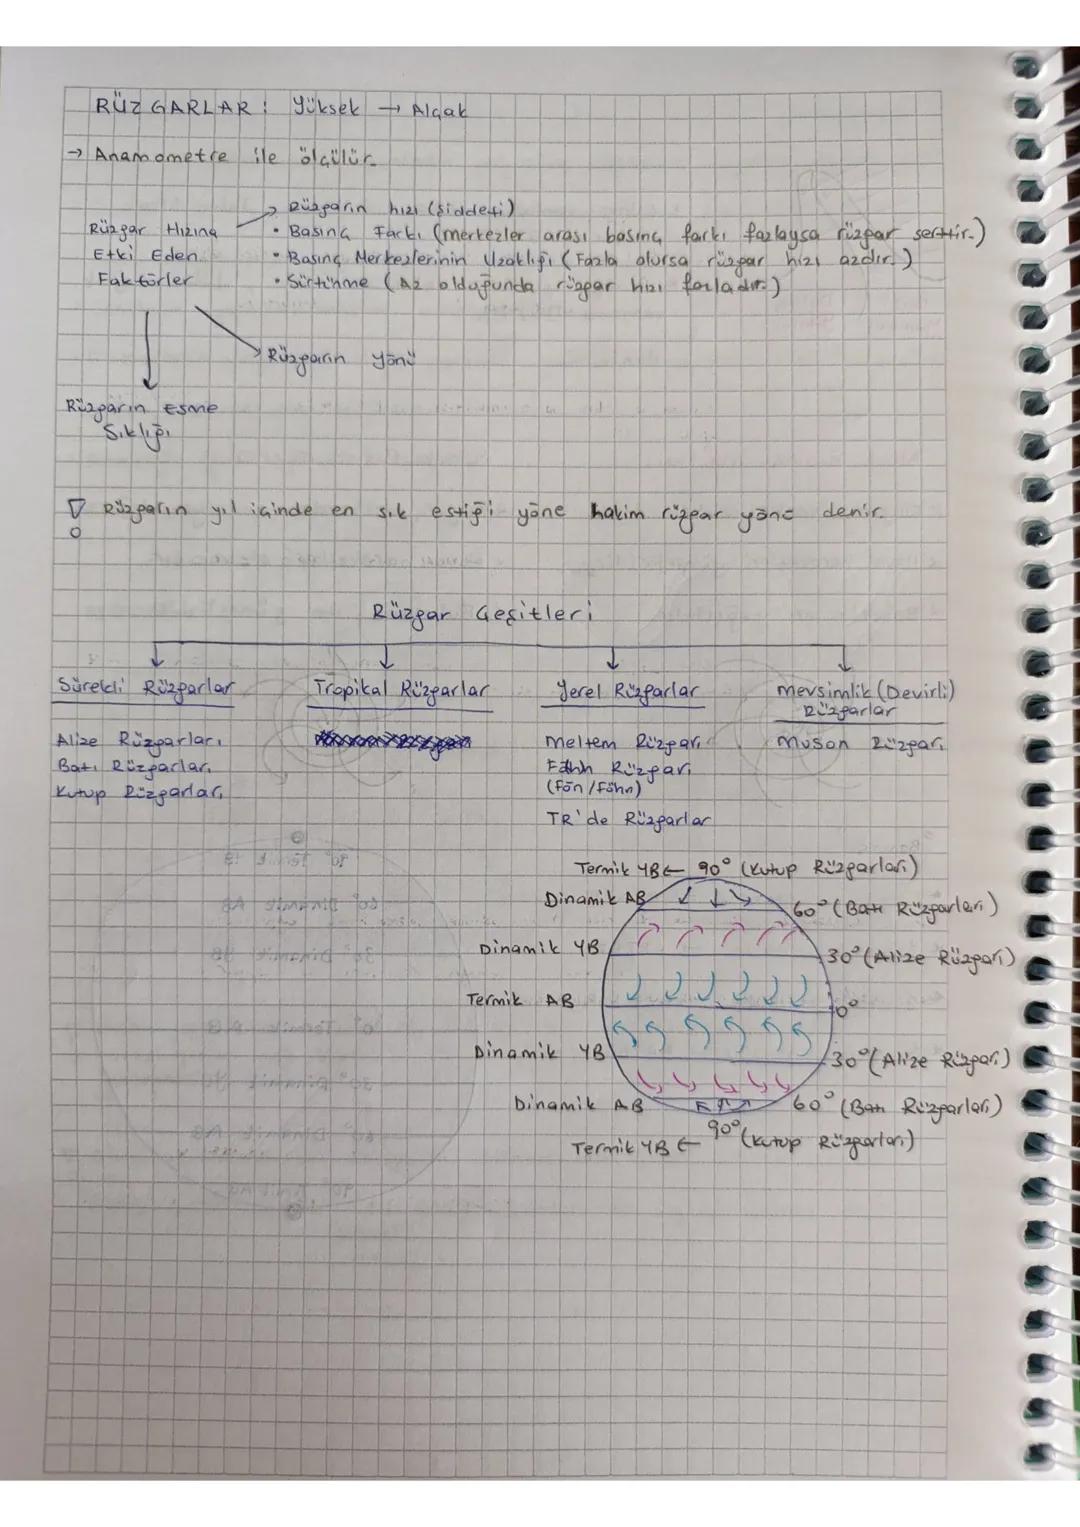 RÜZGARLAR: Yüksek → Alçak
→ Anamometre ile ölçülür.
→ Rüzgarın hızı (şiddeti)
Rüzgar Hızına
Etki Eden
Faktörler
• Basınç Farkı (merkezler arası basınç farkı fazlaysa rüzgar serttir.)
• Basınç Merkezlerinin Uzaklığı (Fazla olursa rüzgar hızı azdır.)
• Sürtünme (Az olduğunda rüzgar hızı fazladır.)
Rüzgarın Yönü
Rüzgarın Esme
Sıklığı
Rüzgarın yıl içinde en sık estiği yöne hakim rüzgar yönü denir.
Rüzgar Çeşitleri
Sürekli Rüzgarlar
Alize Rüzgarları
Batı Rüzgarları
Kutup Rüzgarları
Tropikal Rüzgarlar
Yerel Rüzgarlar
Meltem Rüzgarı
Föhn Rüzgarı
(Fön/Föhn)
TR'de Rüzgarlar
Mevsimlik (Devirli)
Rüzgarlar
Muson Rüzgarı
Termik YB ← 90° (Kutup Rüzgarları)
Dinamik AB 60° (Batı Rüzgarları)
Dinamik YB 30° (Alize Rüzgarı)
Termik AB 0°
Dinamik YB 30° (Alize Rüzgarı)
Dinamik AB 60° (Batı Rüzgarları)
Termik YB ← 90° (Kutup Rüzgarları)